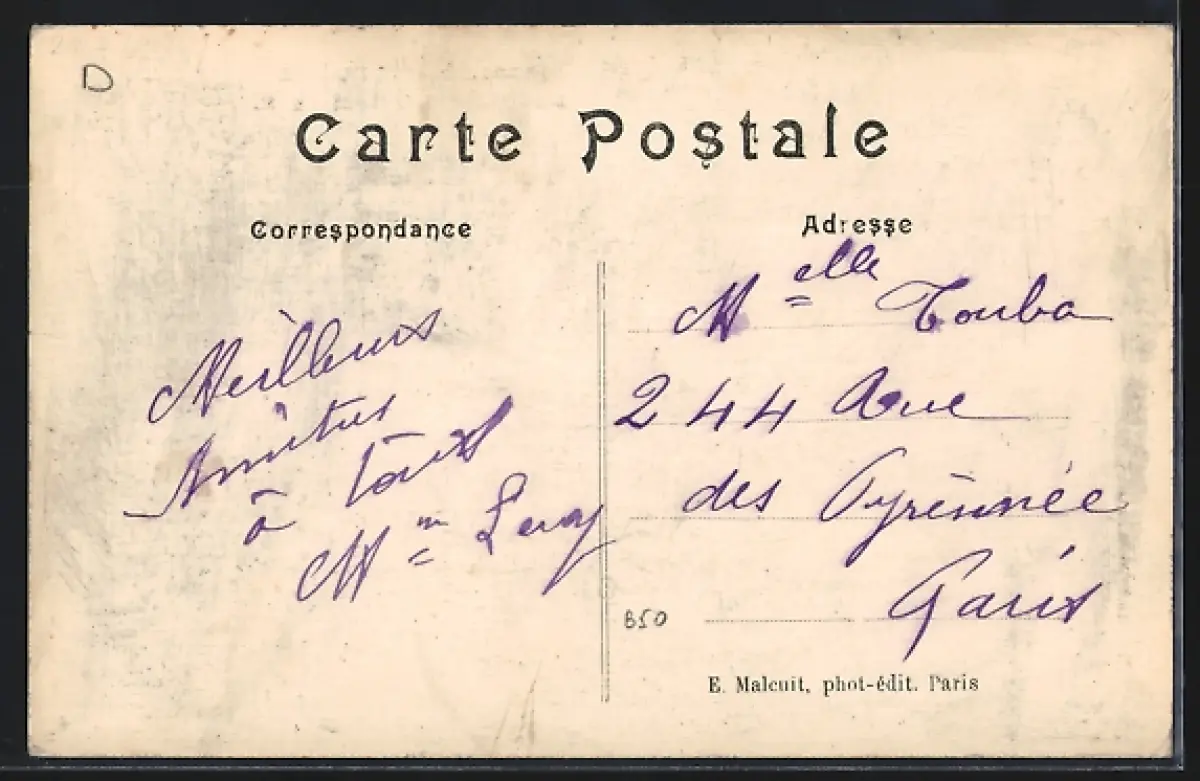 D
Carte Postale
Correspondance
Adresse
Meilleurs
Amitiés
à tous
Mm Levy
Melle Touba
244 Rue
des Pyrénnée
Paris
B50
E. Malcuit, phot-édit. Paris